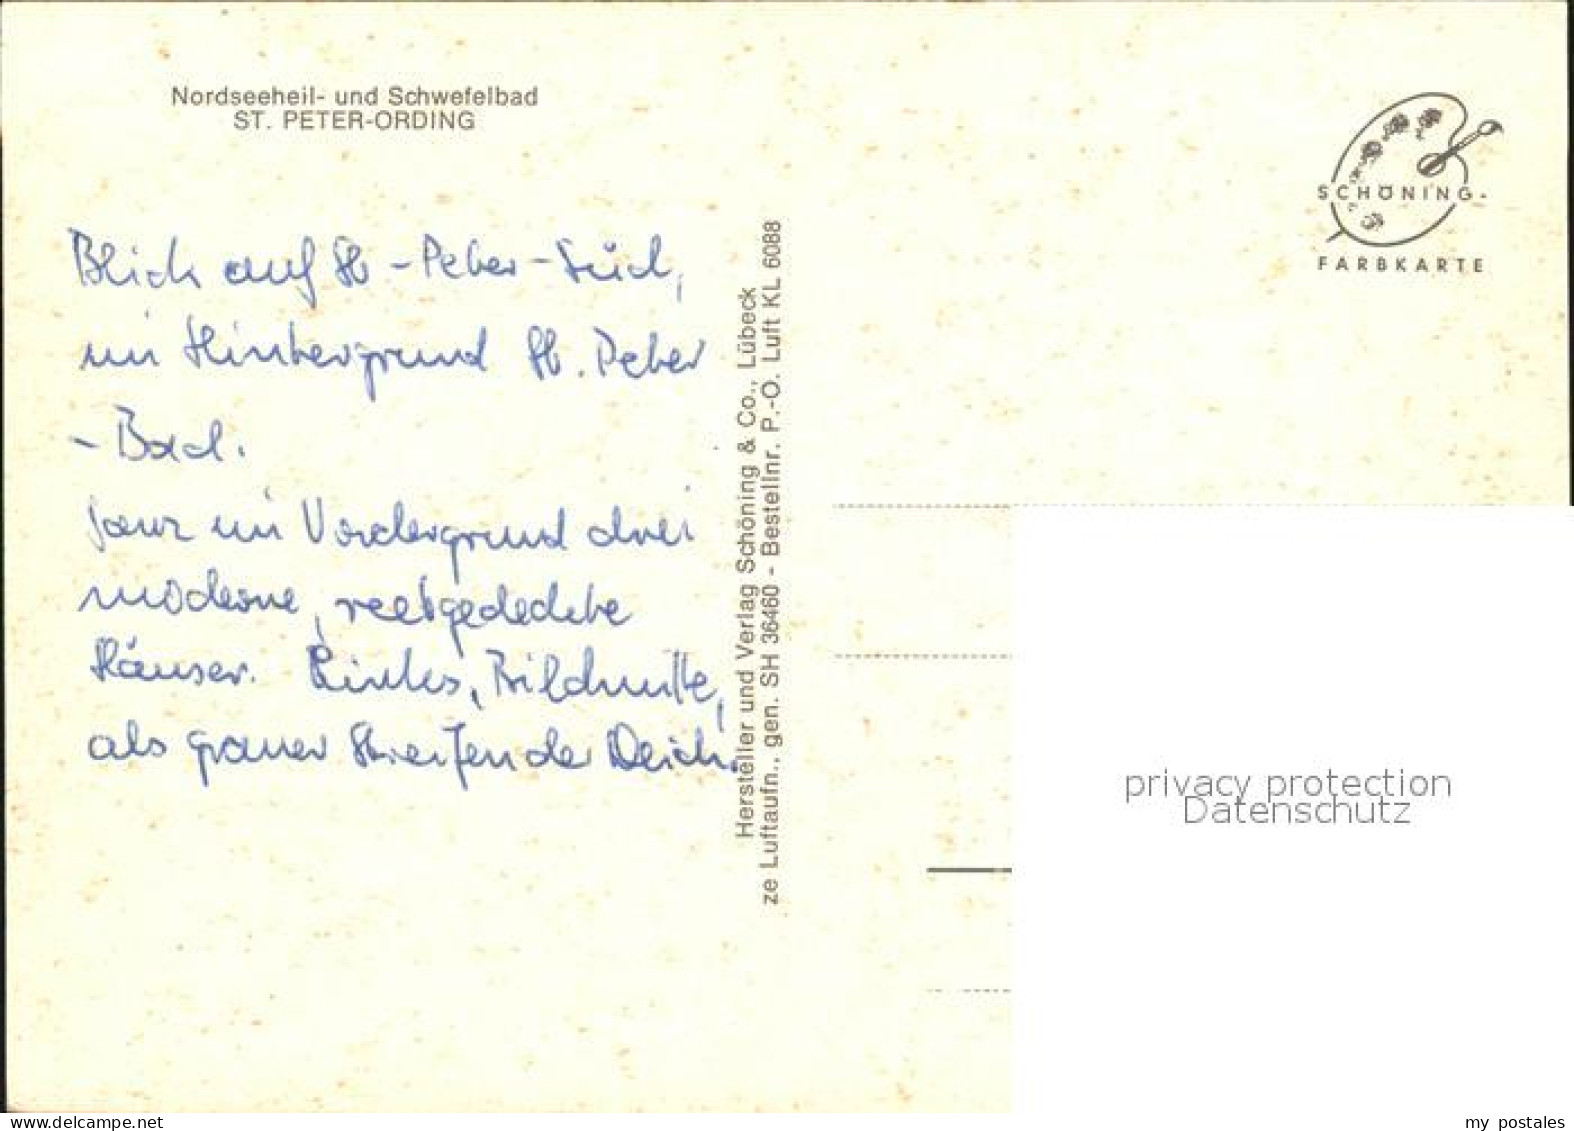 Nordseeheil- und Schwefelbad
ST. PETER-ORDING
SCHÖNING-
FARBKARTE
Blick auf St-Peter-Süd,
im Hintergrund St. Peter
-Bad.
Ganz im Vordergrund drei
moderne, reetgedeckte
Häuser. Links, Bildmitte,
als grauer Streifen der Deich.
Hersteller und Verlag Schöning & Co., Lübeck
ze Luftaufn., gen. SH 36460 - Bestellnr. P.-O. Luft KL 6088
privacy protection
Datenschutz
www.delcampe.net
my postales